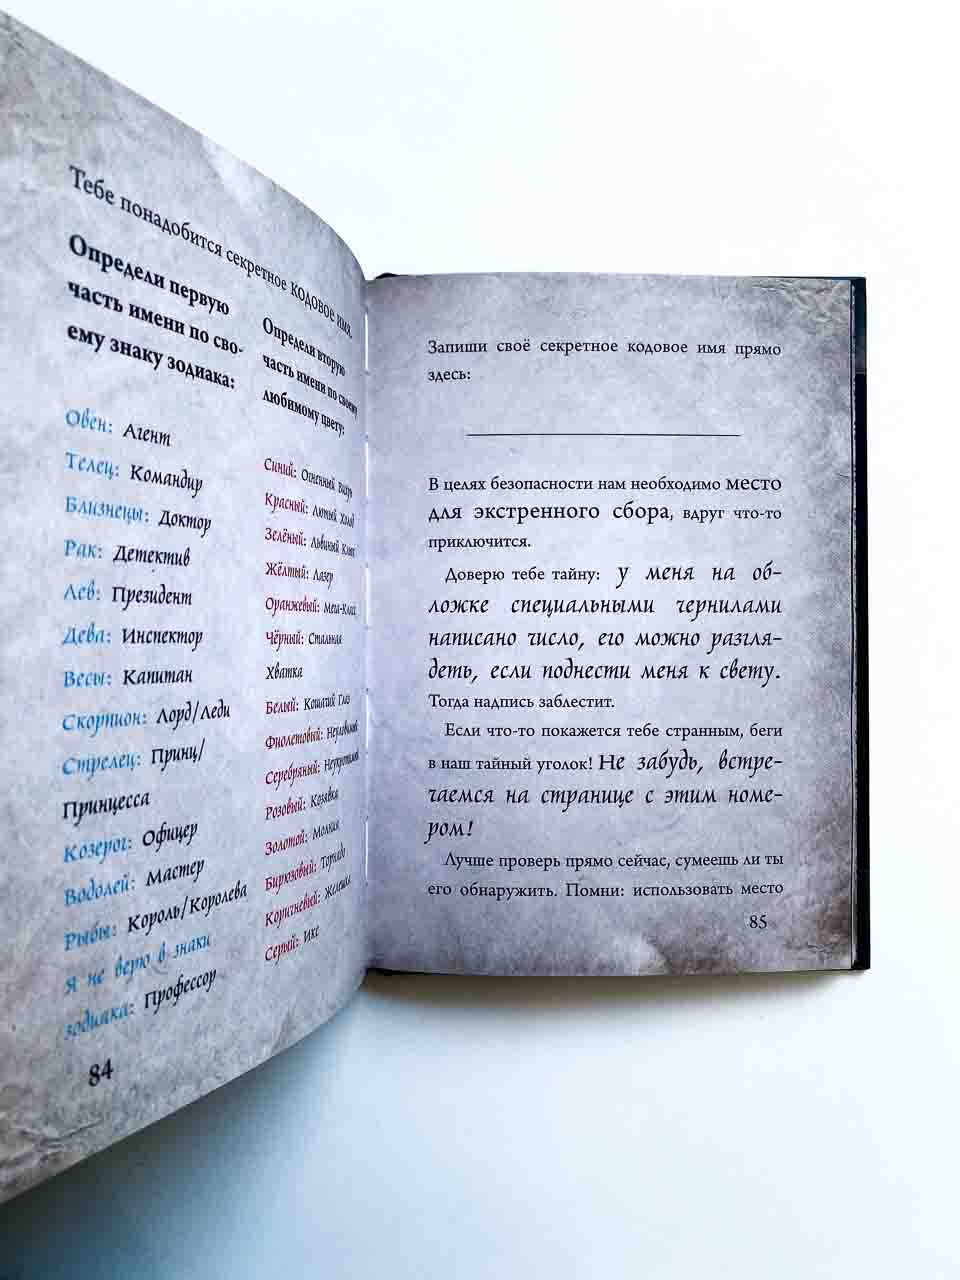 Тебе понадобится секретное кодовое имя.
Определи первую
часть имени по сво-
ему знаку зодиака:
Овен: Агент
Телец: Командир
Близнецы: Доктор
Рак: Детектив
Лев: Президент
Дева: Инспектор
Весы: Капитан
Скорпион: Лорд/Леди
Стрелец: Принц/
Принцесса
Козерог: Офицер
Водолей: Мастер
Рыбы: Король/Королева
Я не верю в знаки
зодиака: Профессор
84
Определи вторую
часть имени по своему
любимому цвету:
Синий: Огненный Вихрь
Красный: Лютый Холод
Зелёный: Львиный Клык
Жёлтый: Лазер
Оранжевый: Мега-Класс
Чёрный: Стальная
Хватка
Белый: Кошачий Глаз
Фиолетовый:
Серебряный:
Розовый: Козявка
Золотой: Молния
Бирюзовый: Торнадо
Коричневый:
Серый: Икс
Запиши своё секретное кодовое имя прямо
здесь:
В целях безопасности нам необходимо место
для экстренного сбора, вдруг что-то
приключится.
Доверю тебе тайну: у меня на об-
ложке специальными чернилами
написано число, его можно разгля-
деть, если поднести меня к свету.
Тогда надпись заблестит.
Если что-то покажется тебе странным, беги
в наш тайный уголок! Не забудь, встре-
чаемся на странице с этим номе-
ром!
Лучше проверь прямо сейчас, сумеешь ли ты
его обнаружить. Помни: использовать место
85